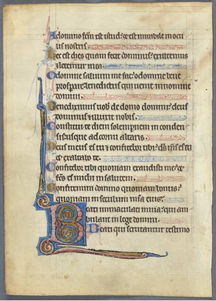 A domino factum est istud: et est mirabile in ocu
lis nostris
Hec est dies quam fecit dominus: exultemus
et letemur in ea
O domine salvum me fac o domine bene
prosperare: benedictus qui venit in nomine
domini
Benediximus vobis de domo domini: deus
dominus et illuxit nobis
Constituite diem solempnem in conden
sis: usque ad cornu altaris
Deus meus es tu et confitebor tibi: deus meus es tu
et exaltabo te
Confitebor tibi quoniam exaudisti me: et fac
tus es michi in salutem
Confitemini domino quoniam bonus:
quoniam in seculum misericordia eius
Beati immaculati in via: qui am
bulant in lege domini
Beati qui scrutantur testimo